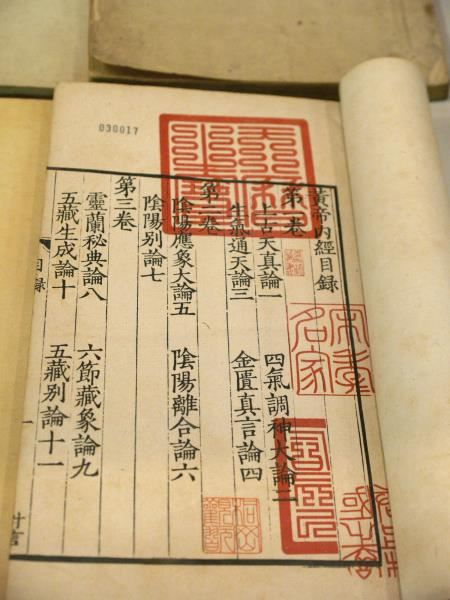 030017
黃帝內經目錄
第一卷
上古天真論一 四氣調神大論二
生氣通天論三 金匱真言論四
第二卷
陰陽應象大論五 陰陽離合論六
陰陽别論七
第三卷
靈蘭秘典論八 六節藏象論九
五藏生成論十 五藏別論十一
目錄